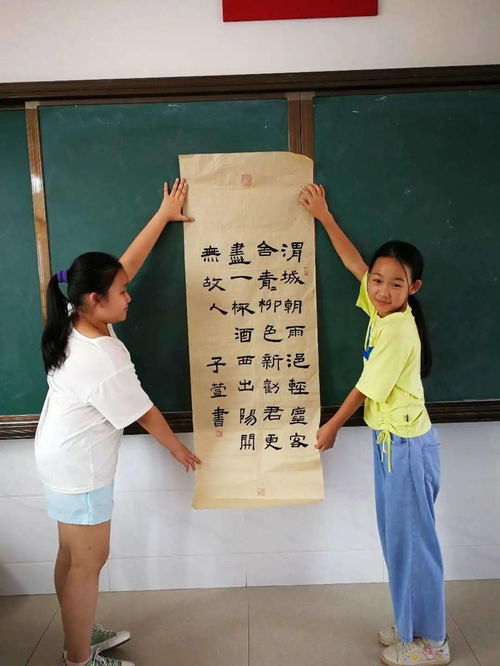 渭城朝雨浥輕塵客
舍青〻柳色新勸君更
盡一杯酒西出陽關
無故人 子萱書